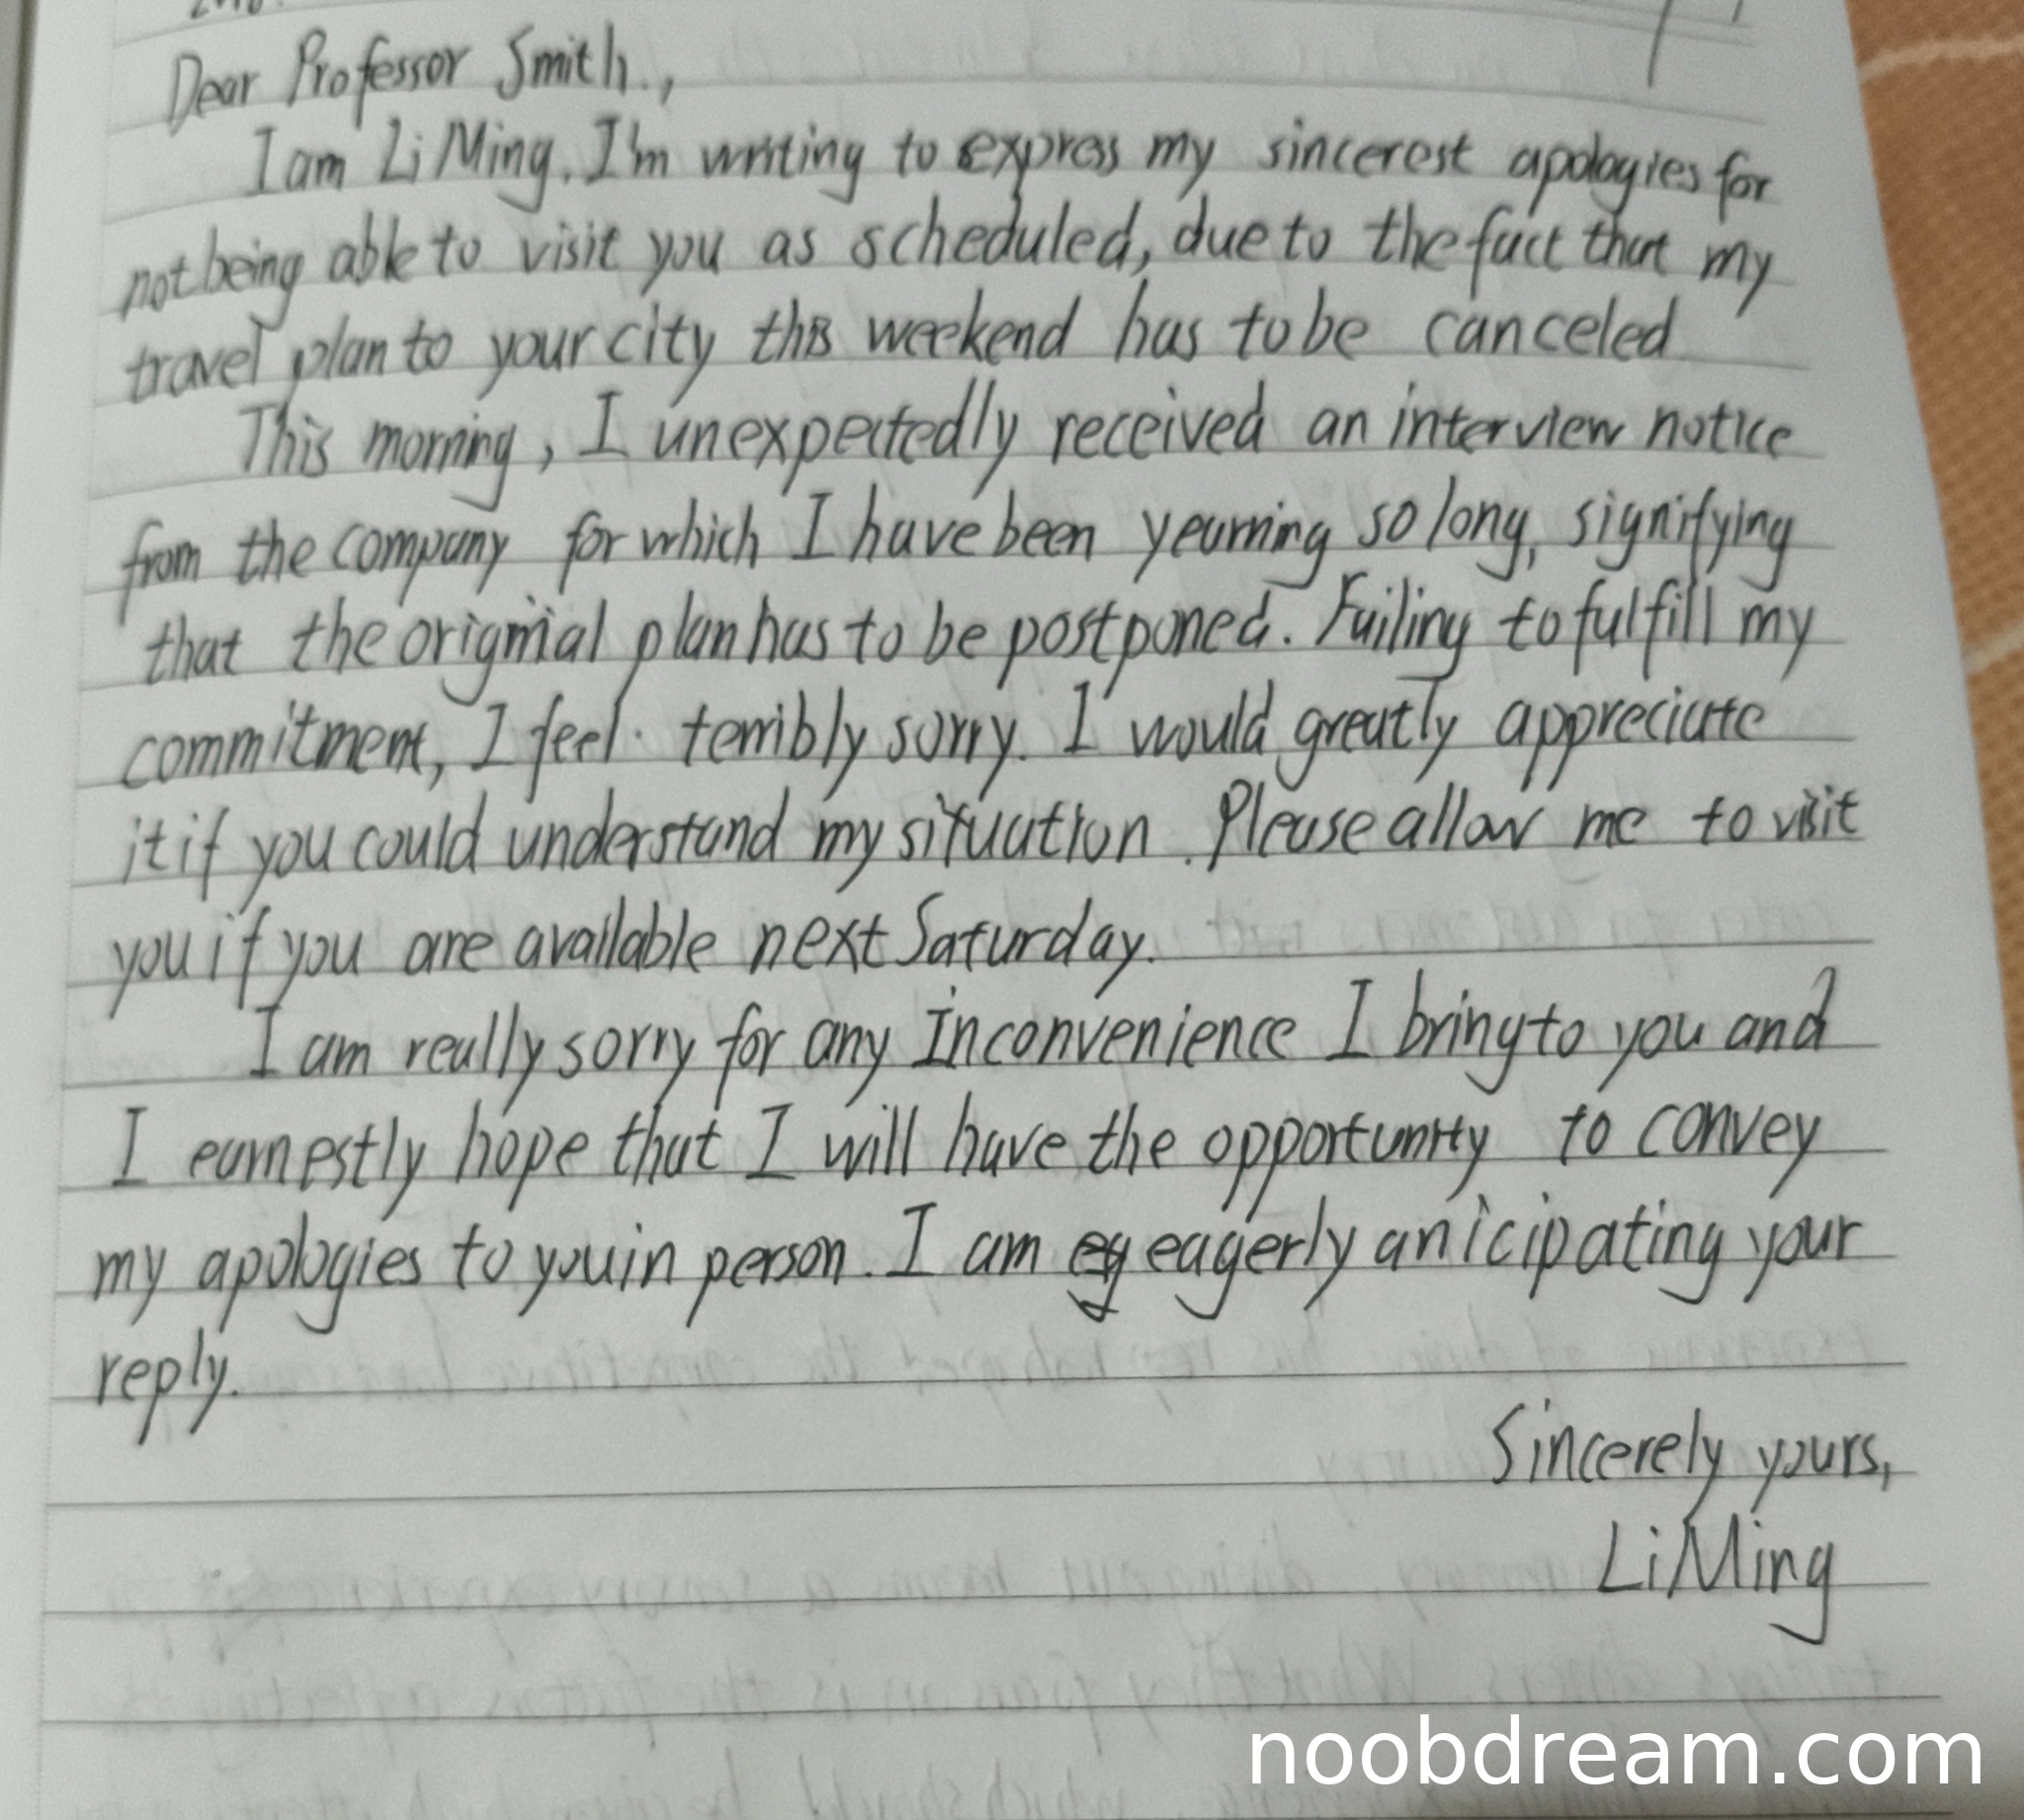 Dear Professor Smith.,
I am Li Ming. I'm writing to express my sincerest apologies for
not being able to visit you as scheduled, due to the fact that my
travel plan to your city this weekend has to be canceled
This morning, I unexpectedly received an interview notice
from the company for which I have been yearning so long, signifying
that the origninal plan has to be postponed. Failing to fulfill my
commitment, I feel terribly sorry. I would greatly appreciate
it if you could understand my situation. Please allow me to visit
you if you are available next Saturday.
I am really sorry for any inconvenience I bring to you and
I earnestly hope that I will have the opportunity to convey
my apologies to you in person. I am eagerly anicipating your
reply.
Sincerely yours,
Li Ming
noobdream.com